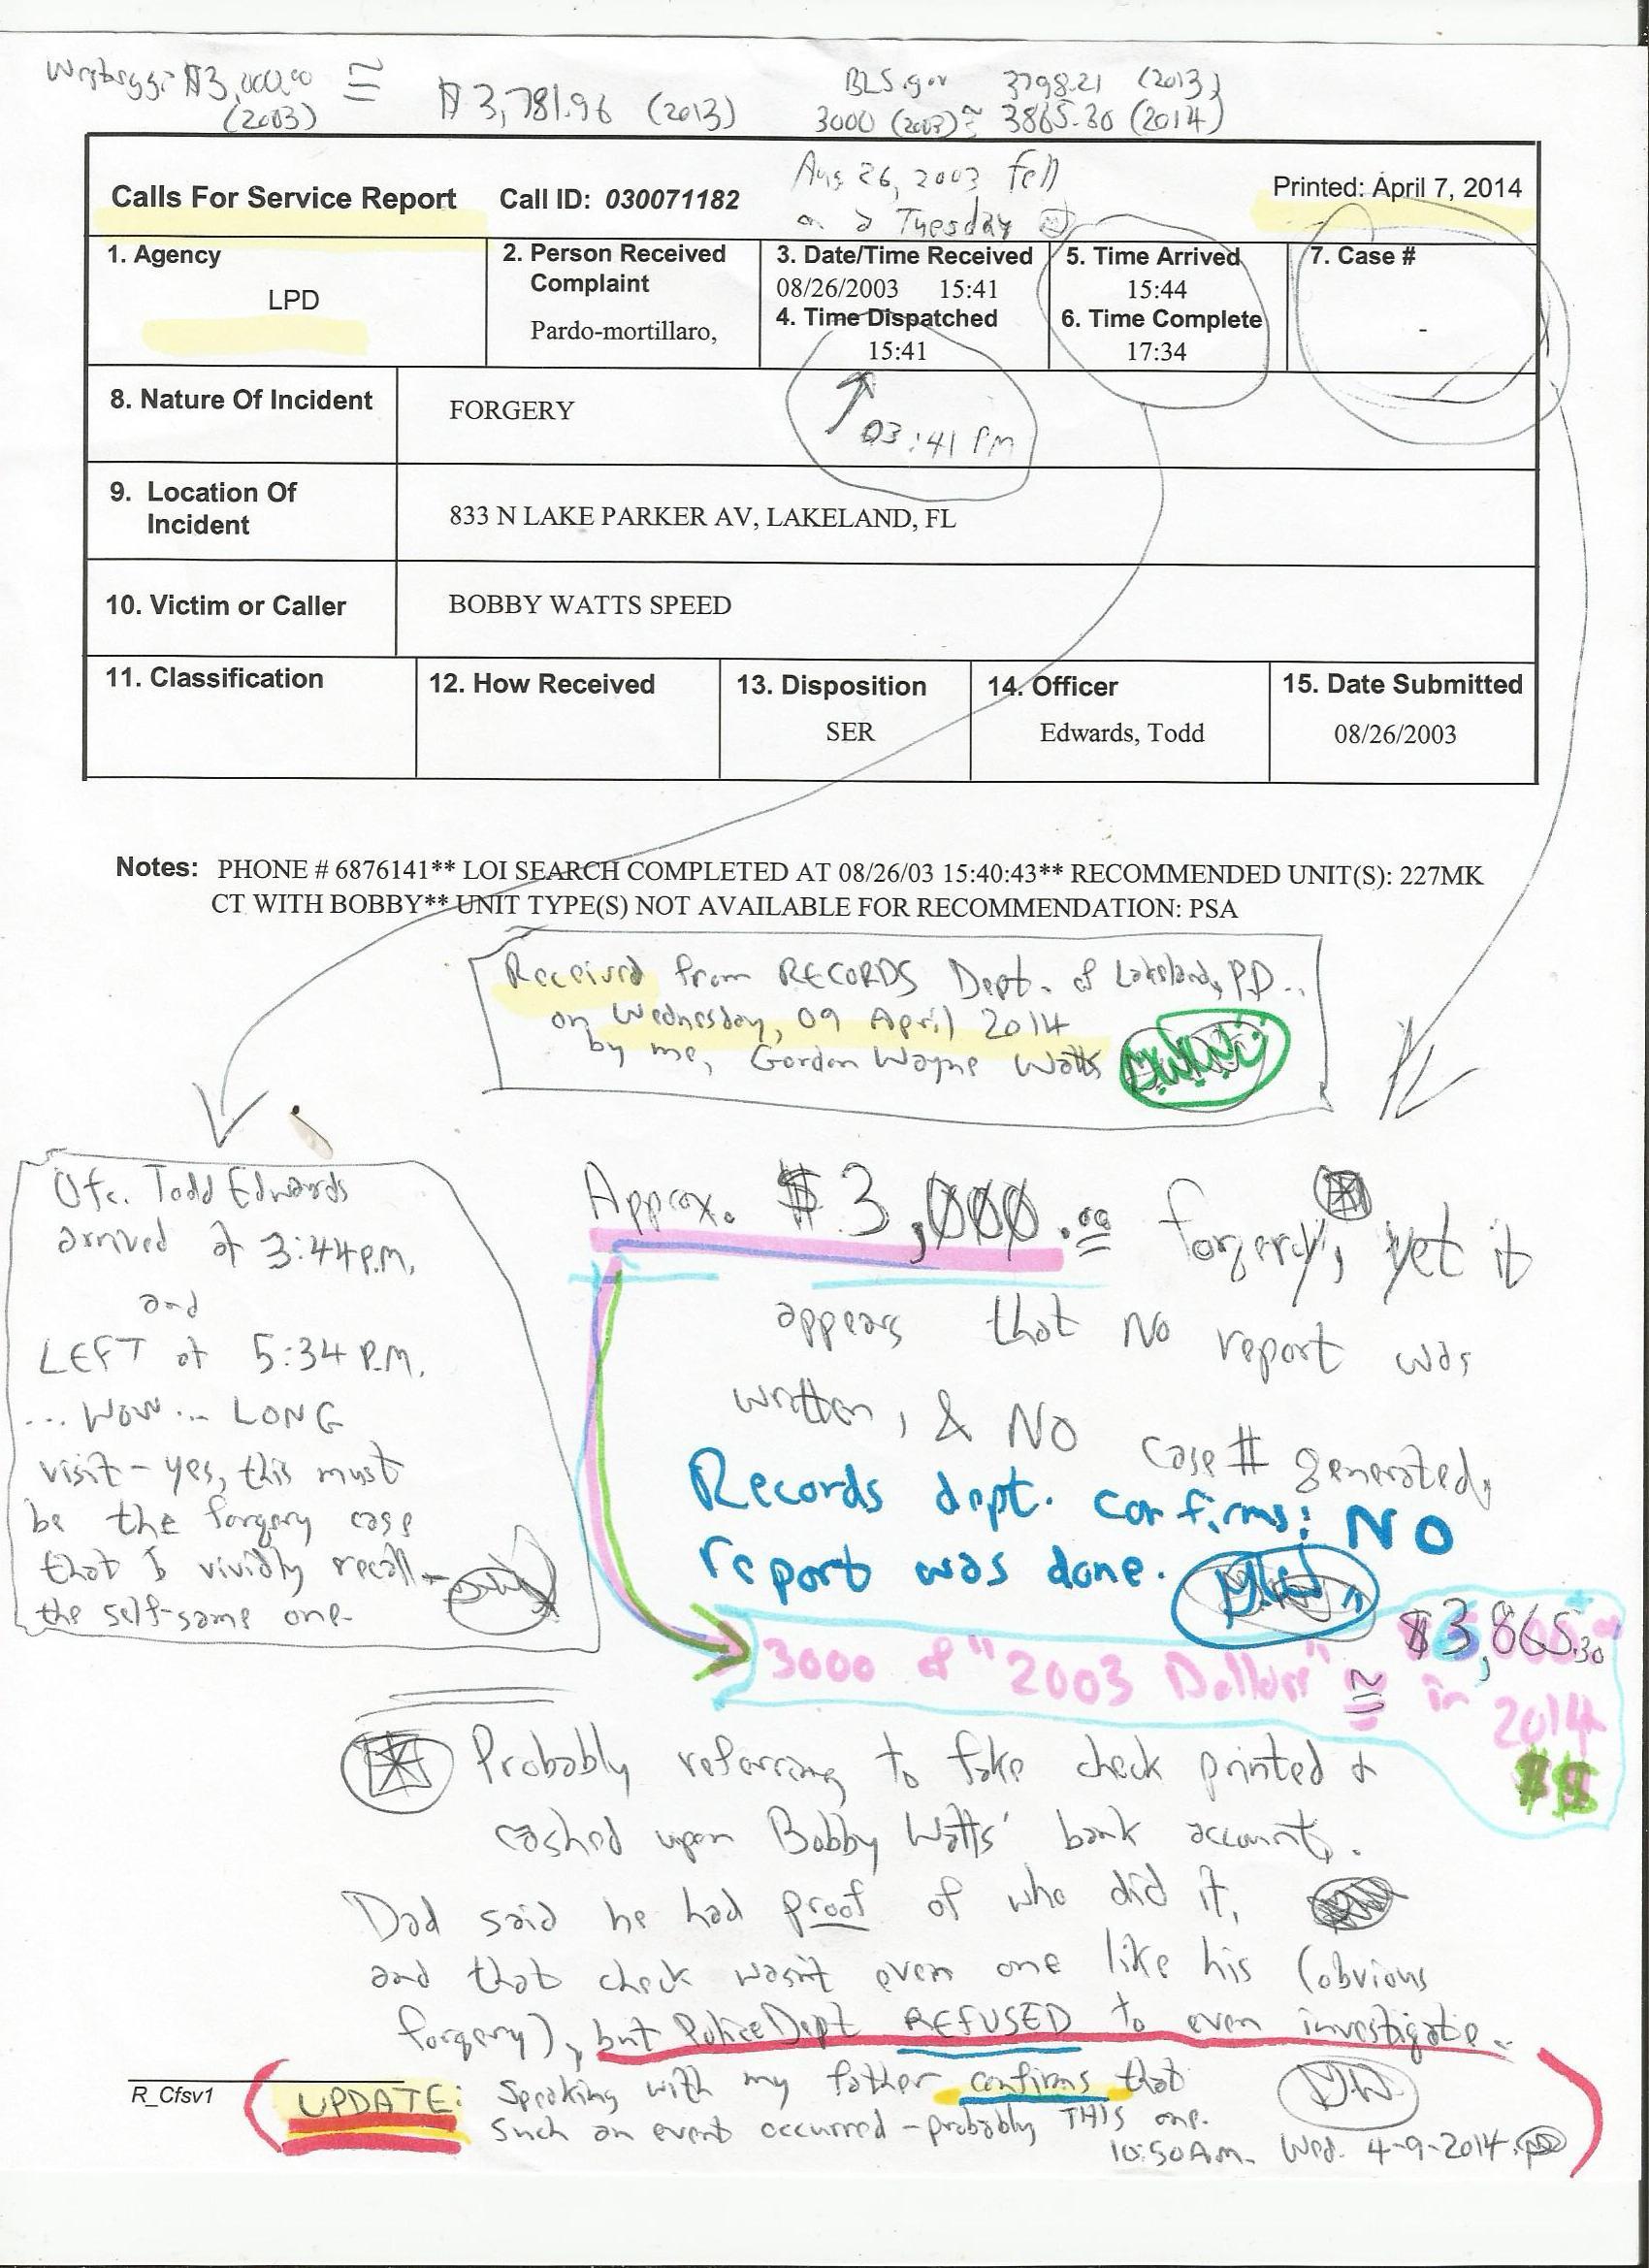 $3,000.00 ≅ $3,781.96 (2013)
(2003)
BLS.gov 3798.21 (2013)
3000 (2003) ≅ 3865.30 (2014)
Calls For Service Report Call ID: 030071182
Aug 26, 2003 fell
on a Tuesday
Printed: April 7, 2014
1. Agency
LPD
2. Person Received
Complaint
Pardo-mortillaro,
3. Date/Time Received
08/26/2003 15:41
4. Time Dispatched
15:41
5. Time Arrived
15:44
6. Time Complete
17:34
7. Case #
-
8. Nature Of Incident FORGERY
03:41 PM
9. Location Of
Incident
833 N LAKE PARKER AV, LAKELAND, FL
10. Victim or Caller BOBBY WATTS SPEED
11. Classification
12. How Received
13. Disposition
SER
14. Officer
Edwards, Todd
15. Date Submitted
08/26/2003
Notes: PHONE # 6876141** LOI SEARCH COMPLETED AT 08/26/03 15:40:43** RECOMMENDED UNIT(S): 227MK
CT WITH BOBBY** UNIT TYPE(S) NOT AVAILABLE FOR RECOMMENDATION: PSA
Received from RECORDS Dept. of Lakeland, P.D..
on Wednesday, 09 April 2014
by me, Gordon Wayne Watts
Ofc. Todd Edwards
arrived at 3:44 P.M.
and
LEFT at 5:34 P.M.
... WOW ... LONG
visit - yes, this must
be the forgery case
that I vividly recall -
the self-same one.
Approx. $3,000.00 forgery*, yet it
appears that No report was
written, & NO case # generated,
Records dept. confirms: NO
report was done.
3000 of "2003 Dollars" ≅ $3,865.30 in 2014
$$
* Probably referring to fake check printed &
cashed upon Bobby Watts' bank account.
Dad said he had proof of who did it,
and that check wasn't even one like his (obvious
forgery), but Police Dept REFUSED to even investigate.
R_Cfsv1
UPDATE: Speaking with my father confirms that
such an event occurred - probably THIS one.
10:50 A.M. Wed. 4-9-2014.